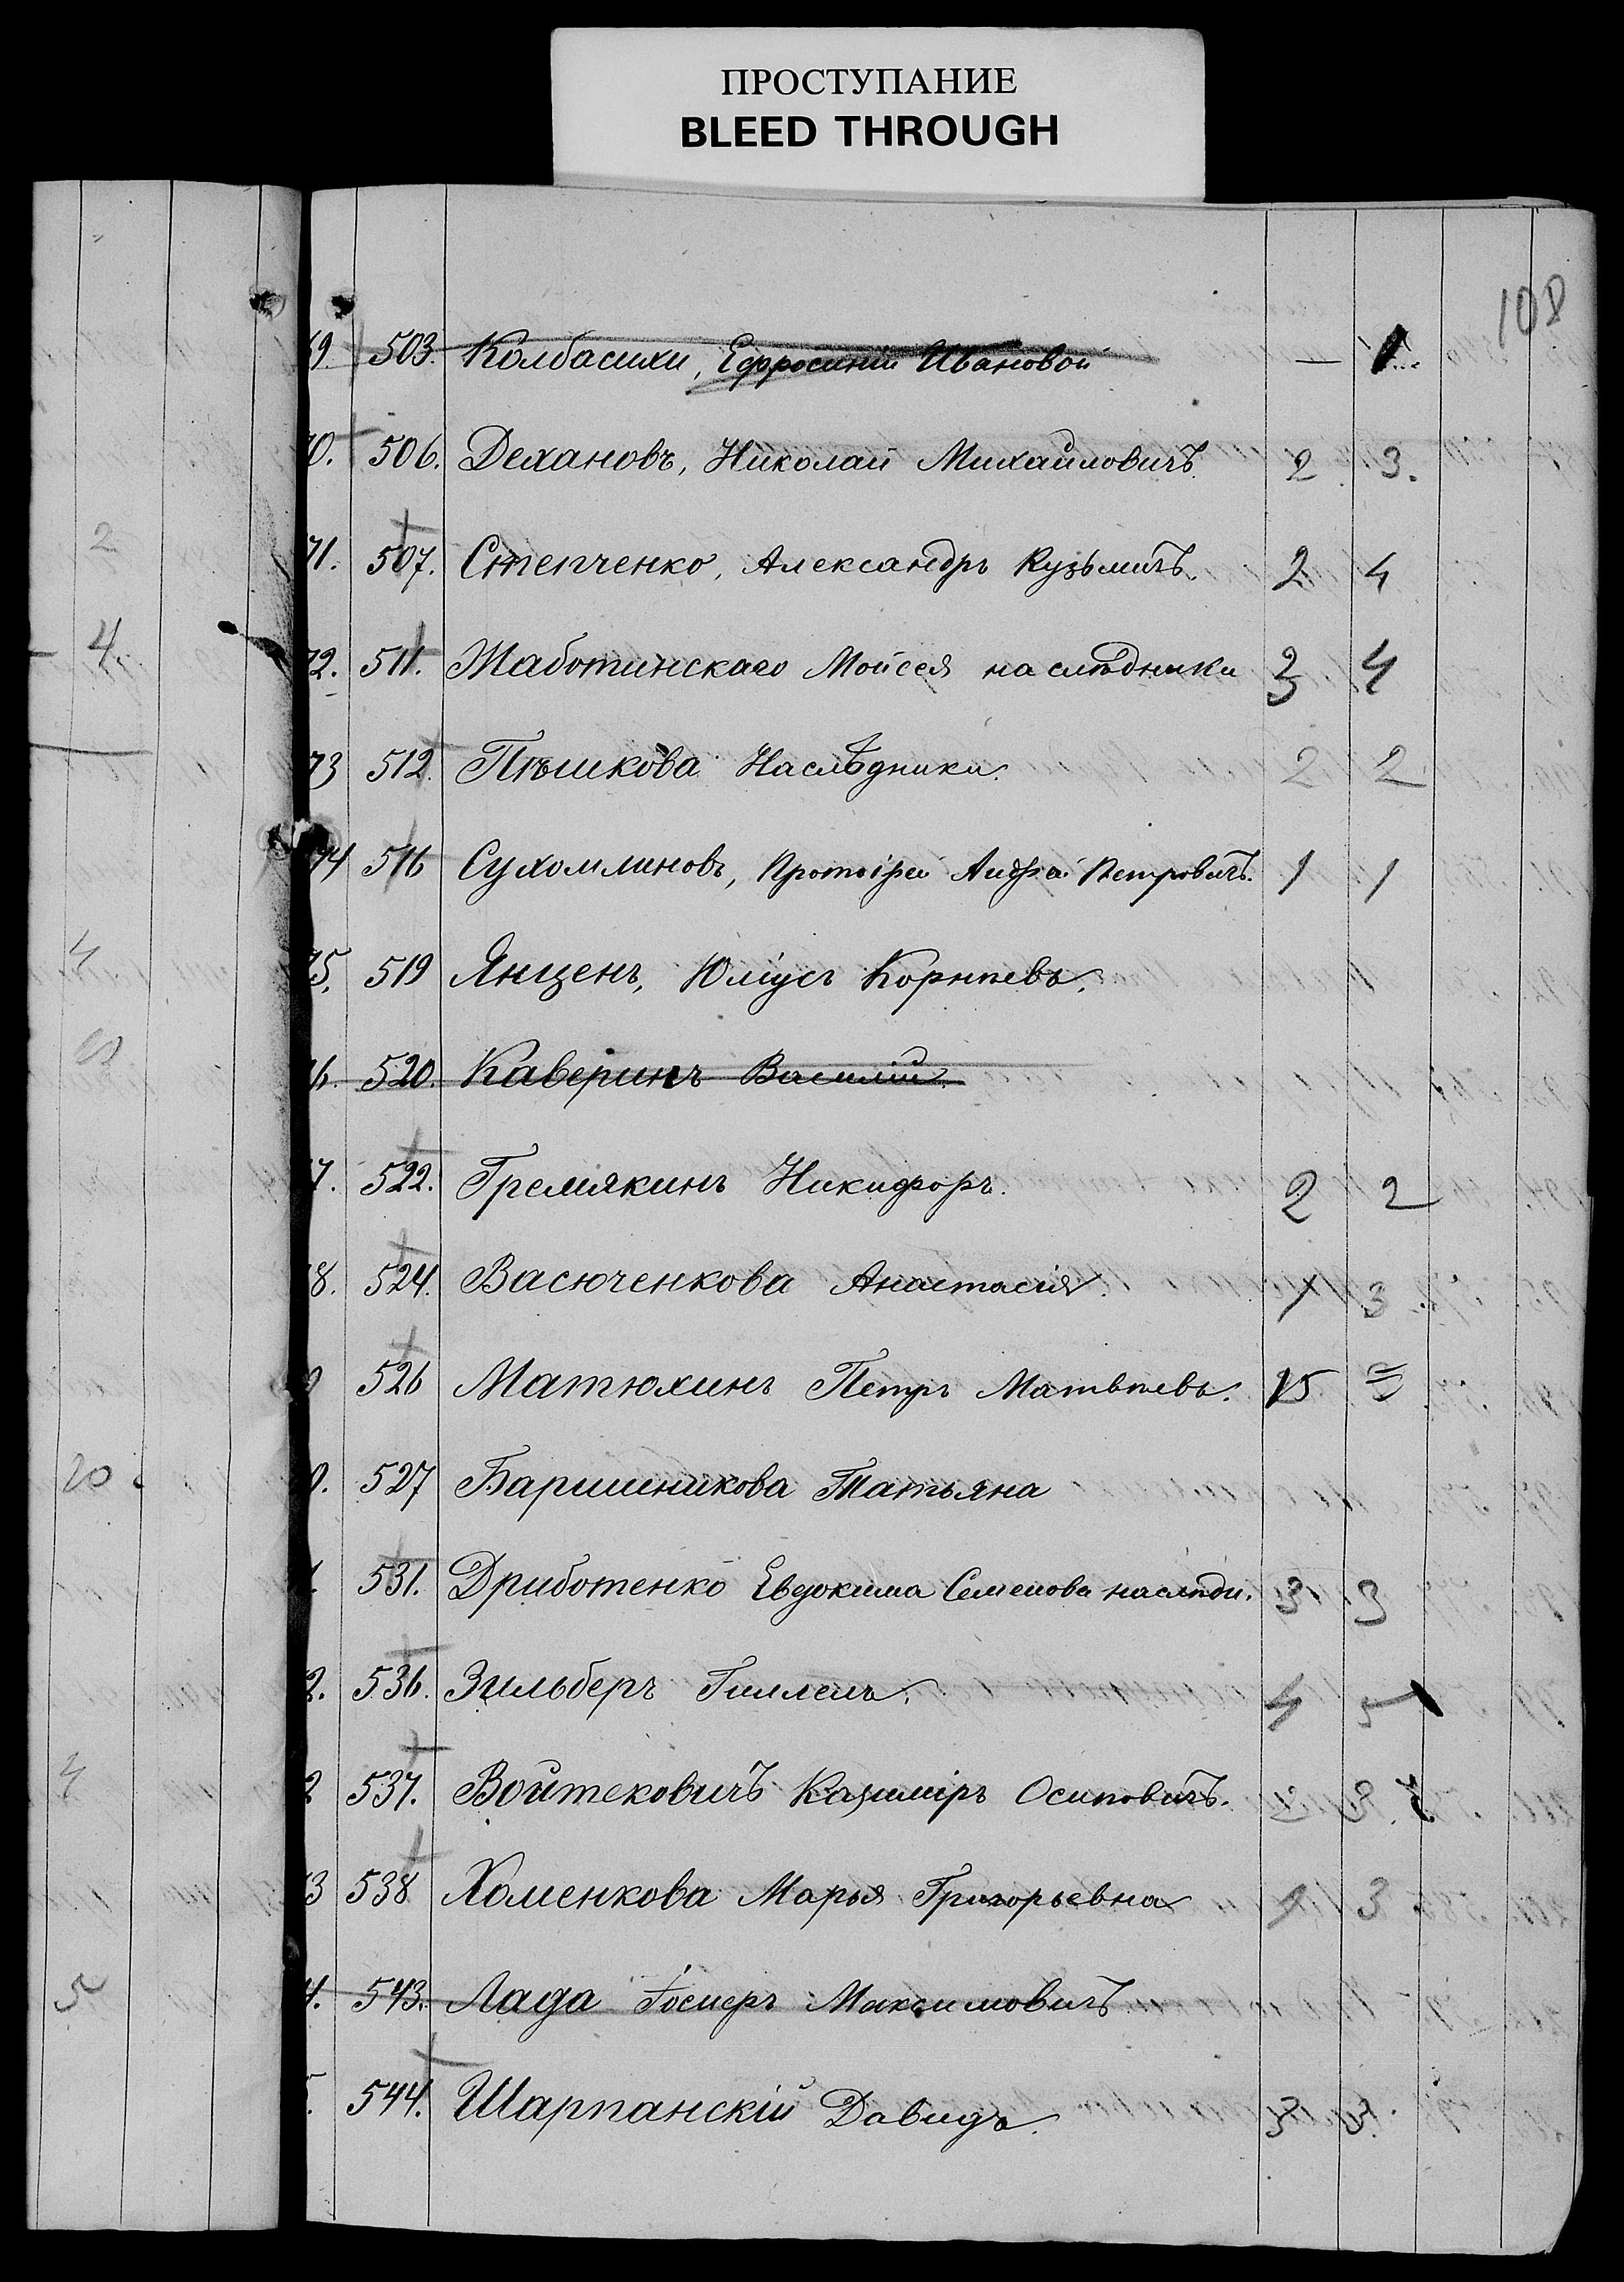 ПРОСТУПАНИЕ
BLEED THROUGH
108
503. Колбасихи, Ефросиніи Ивановой —
506. Дехановъ, Николай Михайловичъ. 2 3.
71. 507. Степченко, Александръ Кузьмичъ. 2 4
72. 511. Жаботинскаго Мойсея наслѣдники 3 4
73 512. Пѣшкова Наслѣдники. 2 2
74 516 Сухомлиновъ, Протоіерей Андрей Петровичъ. 1 1
75. 519 Янценъ, Юліусъ Корнѣевъ.
520. Каверинъ Василій.
7. 522. Гремякинъ Никифоръ. 2 2
8. 524. Васюченкова Анастасія. 1 3
526 Матюхинъ Петръ Матвѣевъ. 15
527 Баришникова Татьяна
531. Дриботенко Евдокима Семенова наслѣдн. 3 3
2. 536. Зильберъ Гиллель. 4 5
537. Войтековичъ Казиміръ Осиповичъ. 3
3 538 Хоменкова Марья Григорьевна 3
4. 543. Лада Максимовичъ
544. Шарпанскій Давидъ. 3 3.
2
4
4
20
4
5